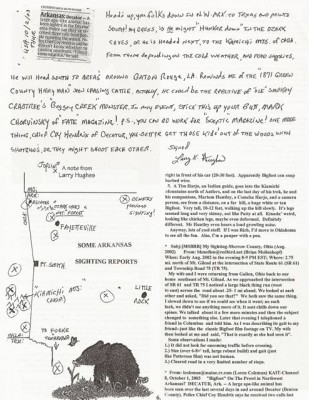 Arkansas: Decatur - A
Heads up you folks down in N.W. Ark. to Texas and points
South! My guess, is he might "hunker down in the Ozark
caves, or he is headed next, to the Kiamichi mts. of Okla
from there depending on the cold weather, and food supplies,
He will head south to areas around Baton Rouge, LA. Reminds me of the 1871 Green
County Hairy man seen chasing cattle, actually, he could be the relative of "ole" Smokey
Crabtree's Boggy Creek Monster. In any event, stick this up your butt, Mark
Chorvinsky of Fate Magazine! P.S., you can go work for "Sceptic" Machine! One more
thing, Chief Coy Hendrix of Decatur, you better get those kids out of the woods with
shotguns, or they might shoot each other.
Squad
Larry R. Hughes
Joplin
A note from
Larry Hughes
MO.
ARK.
Decatur
Fayeteville
SOME ARKANSAS
SIGHTING REPORTS
Ft. Smith
"Kiamichi"
(Okla)
Little
Rock
Ark.
Tex.
To Fouke
right in front of his car (20-30 feet). Apparently Bigfoot can swap
barbed wire.
5. A Tim Harjo, an Indian guide, goes into the Kiamichi
mountains north of Antlers, and on the last day of his trek, he and
his companions, Marion Hantley, a Concha Harjo, and a camera
person, see from a distance, on a far hill, a huge white or tan
Bigfoot. Very tall, 10-12 feet, walking up the hill slowly. It's legs
seemed long and very skinny, not like Patty at all. Kinada' weird,
looking like chicken legs, maybe even deformed. Definitely
different. Mr Hantley even hears a loud growling noise.
Anyway, lots of cool stuff. If I was Rich, I'd move to Oklahoma
to see all the fun. Also, I'm a pauper with a pen.
* Subj:[MOBRR] My Sighting-Morrow County, Ohio (Aug.
2002)
When: Early Aug. 2002 in the evening 8-9 PM EST; Where: 2.75
mi. north of Mt. Gilead at the intersection of State Route 61 (SR 61)
and Township Road 75 (TR 75).
My wife and I were returning from Galion, Ohio back to our
home southeast of Mt. Gilead. As we approached the intersection
of SR 61 and TR 75 I noticed a large black thing run (trout
to east) across the road about 25- 1 mi ahead. We looked at each
other and asked, "Did you see that?" We both saw the same thing.
I slowed down to see if we could see when it went; as such
luck, we didn't see anything more of it. It sent chills down our
spines. We talked about it a few more minutes and then the subject
changed to something else. Later that evening I telephoned a
friend in Columbus and told him. As I was describing it to my
friend--just like the classic Bigfoot film footage on TV. My wife
then looked at me and said, "That is exactly as she had seen it".
Some observations I made:
1.) It did not look for oncoming traffic before crossing.
2.) Size (over 6-8' tall, large robust build) and gait (just
like Patterson film) was not human.
3.) Cleared road in very few steps.
8, October 1, 2003 "Bigfoot" On The Prowl in Northwest
Arkansas" DECATUR, Ark. -- A large ape-like animal has
been seen over the last several days in and around Decatur (Benton
County). Police Chief Coy Hendrix says he received two calls last
6.